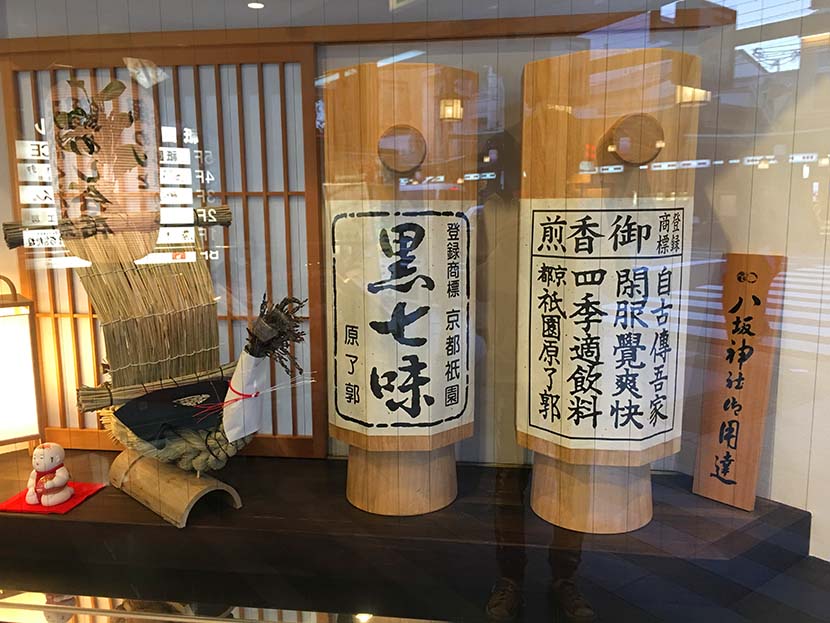 黒七味
登録商標 京都祇園
原了郭
登録
商標
御香煎
自古傳吾家
閑服覺爽快
四季適飲料
京都祇園原了郭
八坂神社御用達
5F
4F
3F
2F